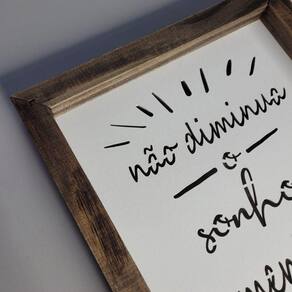 não diminua
o
sonho